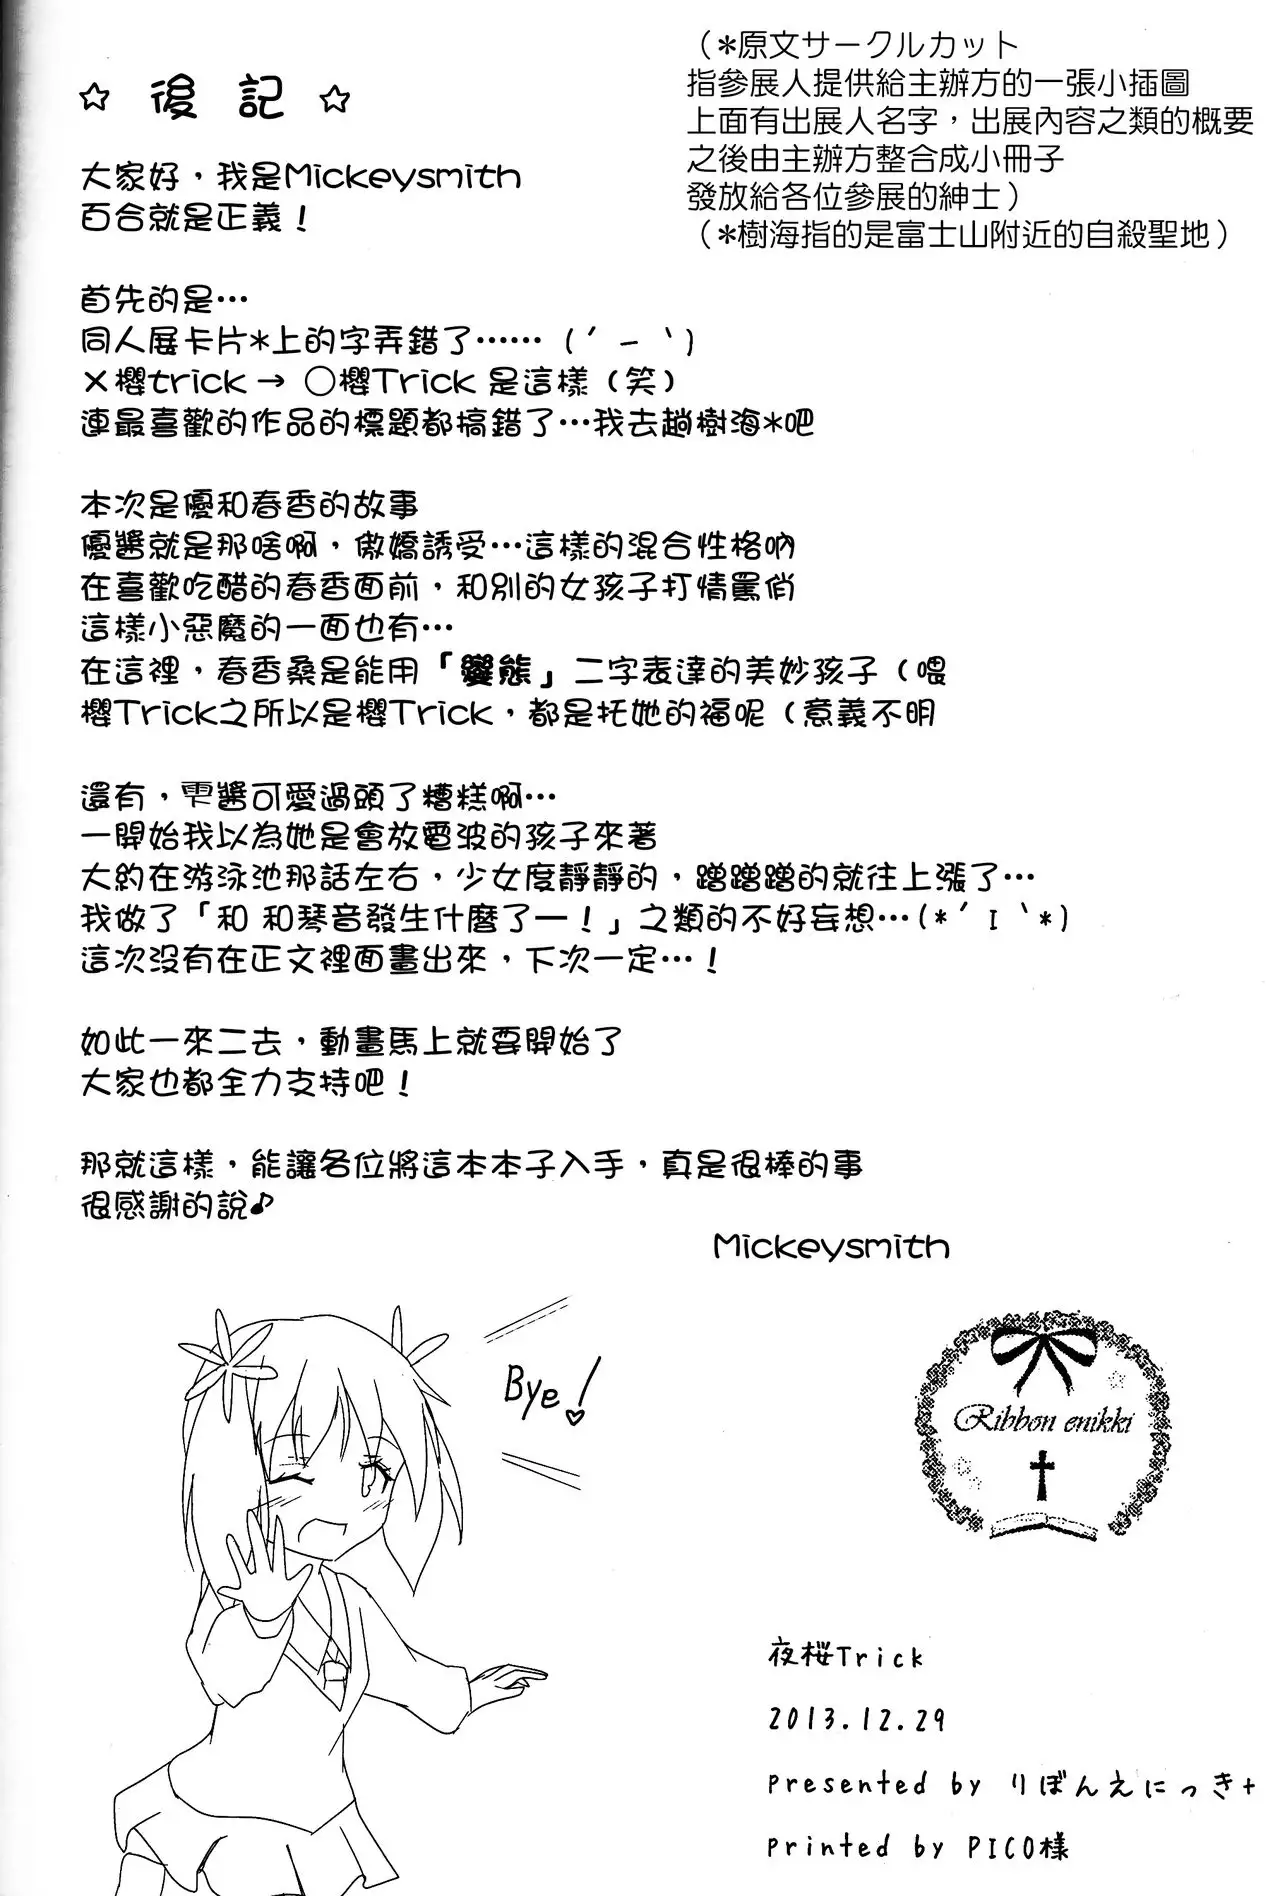 ☆ 後 記 ☆
(*原文サークルカット
指參展人提供給主辦方的一張小插圖
上面有出展人名字，出展內容之類的概要
之後由主辦方整合成小冊子
發放給各位參展的紳士)
(*樹海指的是富士山附近的自殺聖地)
大家好，我是Mickeysmith
百合就是正義！
首先的是…
同人展卡片*上的字弄錯了…… (´－｀)
×櫻trick→ ○櫻Trick 是這樣（笑）
連最喜歡的作品的標題都搞錯了…我去趟樹海*吧
本次是優和春香的故事
優醬就是那啥啊，傲嬌誘受…這樣的混合性格吶
在喜歡吃醋的春香面前，和別的女孩子打情罵俏
這樣小惡魔的一面也有…
在這裡，春香桑是能用「變態」二字表達的美妙孩子（喂
櫻Trick之所以是櫻Trick，都是托她的福呢（意義不明
還有，雫醬可愛過頭了糟糕啊…
一開始我以為她是會放電波的孩子來著
大約在游泳池那話左右，少女度靜靜的，蹭蹭蹭的就往上漲了…
我做了「和 和琴音發生什麼了ー！」之類的不好妄想…(*´Ｉ｀*)
這次沒有在正文裡面畫出來，下次一定…！
如此一來二去，動畫馬上就要開始了
大家也都全力支持吧！
那就這樣，能讓各位將這本本子入手，真是很棒的事
很感謝的說♪
Mickeysmith
Bye!
Ribbon enikki
夜桜Trick
2013.12.29
presented by りぼんえにっき+
printed by PICO様